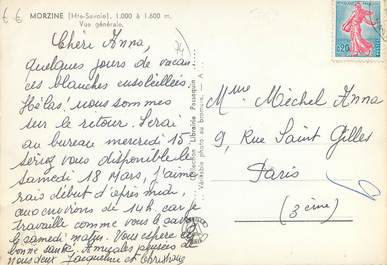 MORZINE (Hte-Savoie), 1.000 à 1.600 m.
Vue générale.
Chèri Anna,
quelques jours de vacan-
ces blanches ensoleillées
Hélas! nous sommes
sur le retour. Serai
au bureau mercredi 15
seriez vous disponible le
samedi 18 Mars, j'aime
rais début d'après midi
aux environs de 14h. car je
travaille comme vous le savez
le samedi matin. Vous espère de
bonne santé. Amicales pensées de
nous deux. Jacqueline et
Edition Librairie Passaquin
Véritable photo au bromure. - A
0,20
Mme Mèchel Anna
9, Rue Saint Gilles
Paris
(3ème)